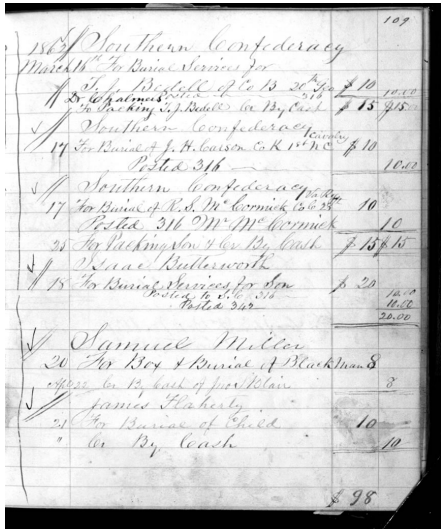 109
1862 Southern Confederacy
March 16th For Burial Services for
T. J. Bedell of Co B 20th Geo $ 10
Posted 316 10.00
Dr Chalmers
To Packing T. J. Bedell Cr By Cash $ 15 $15
Southern Confederacy
17 For Burial of J. H. Carson Co K 1st NC Cavalry $ 10
Posted 316 10.00
Southern Confederacy
17 For Burial of R. S. McCormick Co C 28th 10
Posted 316 Mr McCormick 10
25 For Packing Son & Cr By Cash $ 15 $ 15
Isaac Butterworth
18 For Burial Services for Son $ 20
Posted to S. C. 316 10.00
Posted 342 10.00
20.00
Samuel Miller
20 For Box & Burial of Black Man 8
Apl 22 Cr By Cash of Blair 8
James Flaherty
21 For Burial of Child 10
" Cr By Cash 10
$ 98